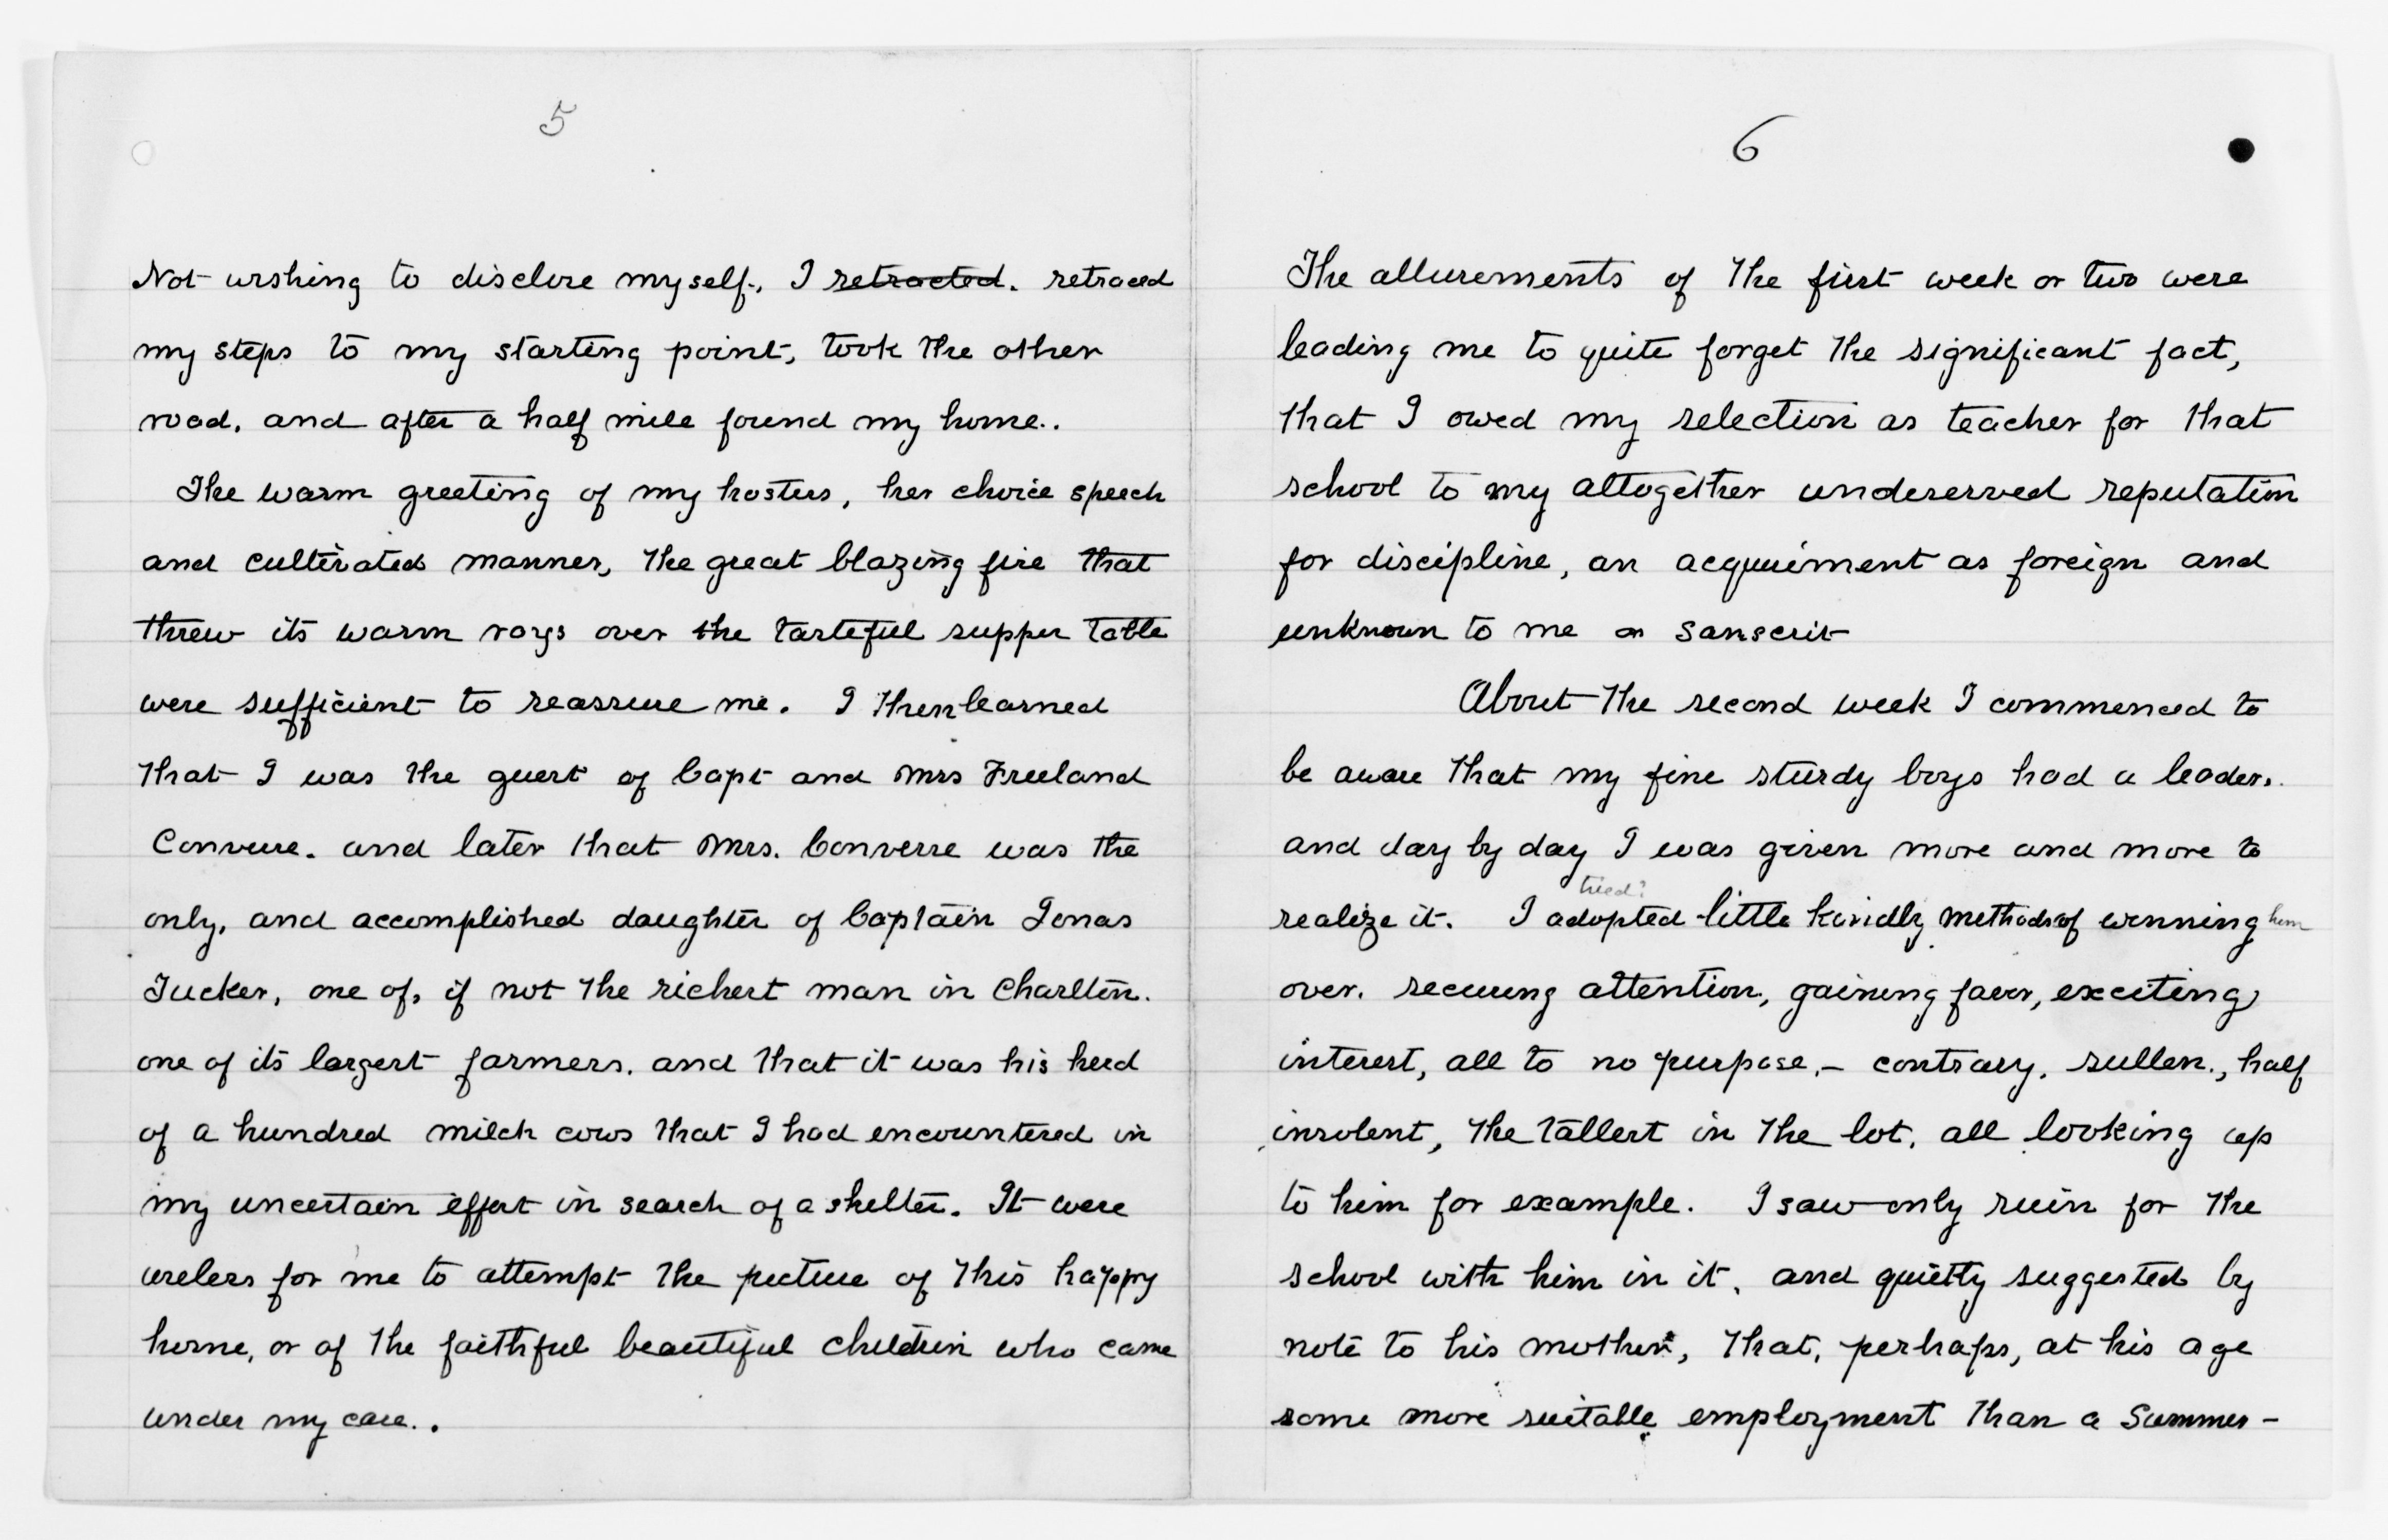 5
Not wishing to disclose myself, I retracted. retraced
my steps to my starting point, took the other
road, and after a half mile found my home..
The warm greeting of my hostess, her choice speech
and cultivated manner, the great blazing fire that
threw its warm rays over the tasteful supper table
were sufficient to reassure me. I then learned
that I was the guest of Capt and Mrs Freeland
Converse. and later that Mrs. Converse was the
only, and accomplished daughter of Captain Jonas
Tucker, one of, if not the richest man in Charlton.
one of its largest farmers. and that it was his herd
of a hundred milch cows that I had encountered in
my uncertain effort in search of a shelter. It were
useless for me to attempt the picture of this happy
home, or of the faithful beautiful children who came
under my care..
6
The allurements of the first week or two were
leading me to quite forget the significant fact,
that I owed my selection as teacher for that
school to my altogether undeserved reputation
for discipline, an acquirment as foreign and
unknown to me as Sanscrit
About the second week I commenced to
be aware that my fine sturdy boys had a leader.
and day by day I was given more and more to
realize it. I adopted little kindly methods of winning him
tried?
over. securing attention, gaining favor, exciting
interest, all to no purpose,- contrary, sullen, half
insolent, the tallest in the lot, all looking up
to him for example. I saw only ruin for the
school with him in it, and quietly suggested by
note to his mother, that, perhaps, at his age
some more suitable employment than a Summer-